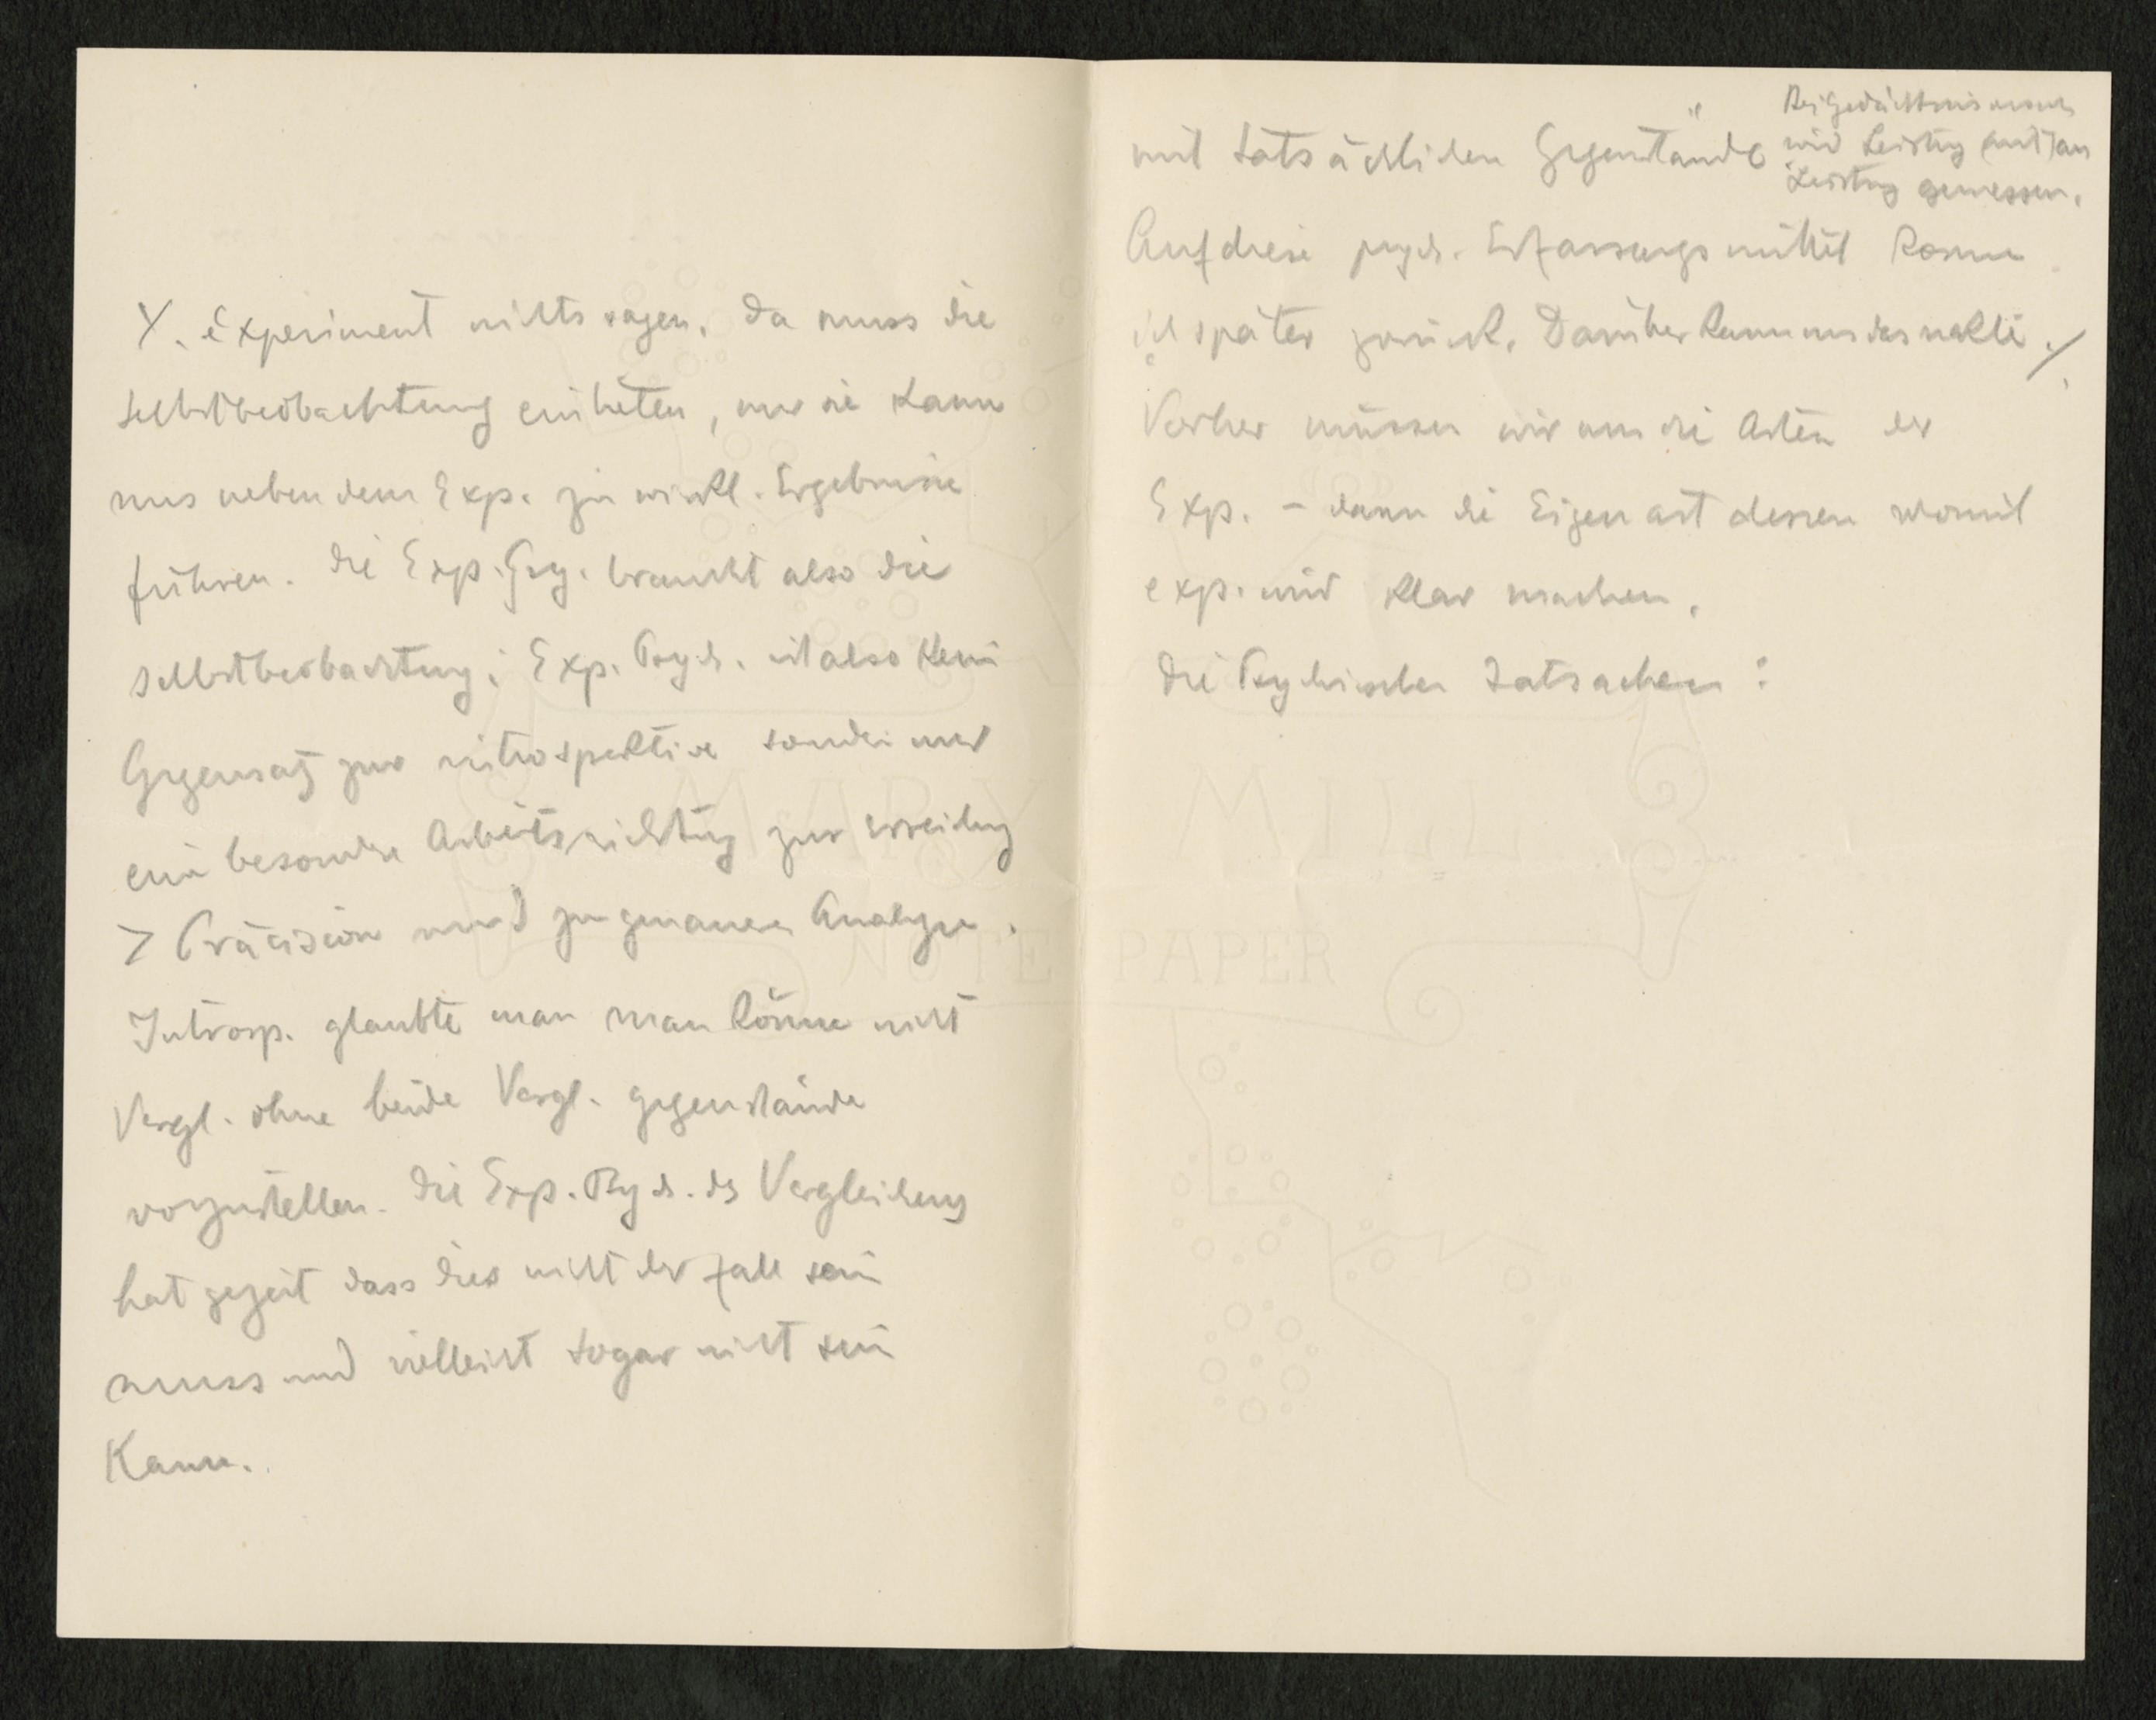 Y. experiment nichts sagen. da muss die
Selbstbeobachtung eintreten, nur sie kann
uns neben dem Exp. zu wirkl. Ergebnisse
führen. die Exp. Psy. braucht also die
Selbstbeobachtung; Exp. Psych. ist also kein
Gegensatz zur introspektive sondern nur
ein besondre Arbeitsrichtung zur Erreichung
> Präcision und zu genauer Analyse.
Introsp. glaubte man man könne nicht
Vergl. ohne beide Vergl. gegenstände
vorzustellen. die Exp. Psych. des Vergleichens
hat gezeit dass dies nicht der Fall sein
muss und vielleicht sogar nicht sein
Kann.
mit tatsächlichen Gegenstände
Bei Gedächtnisversuch
wird Leistung (mit) an
Leistung gemessen.
Auf diese psych. Erfassungsmittel komme
ich später zurück. Darüber kann uns das nackte
Vorher müssen wir uns die Arten der
Exp. - dann die Eigenart dessen womit
exp. wird klar machen.
die Psychischen Tatsachen:
MARY MILL
NOTE PAPER